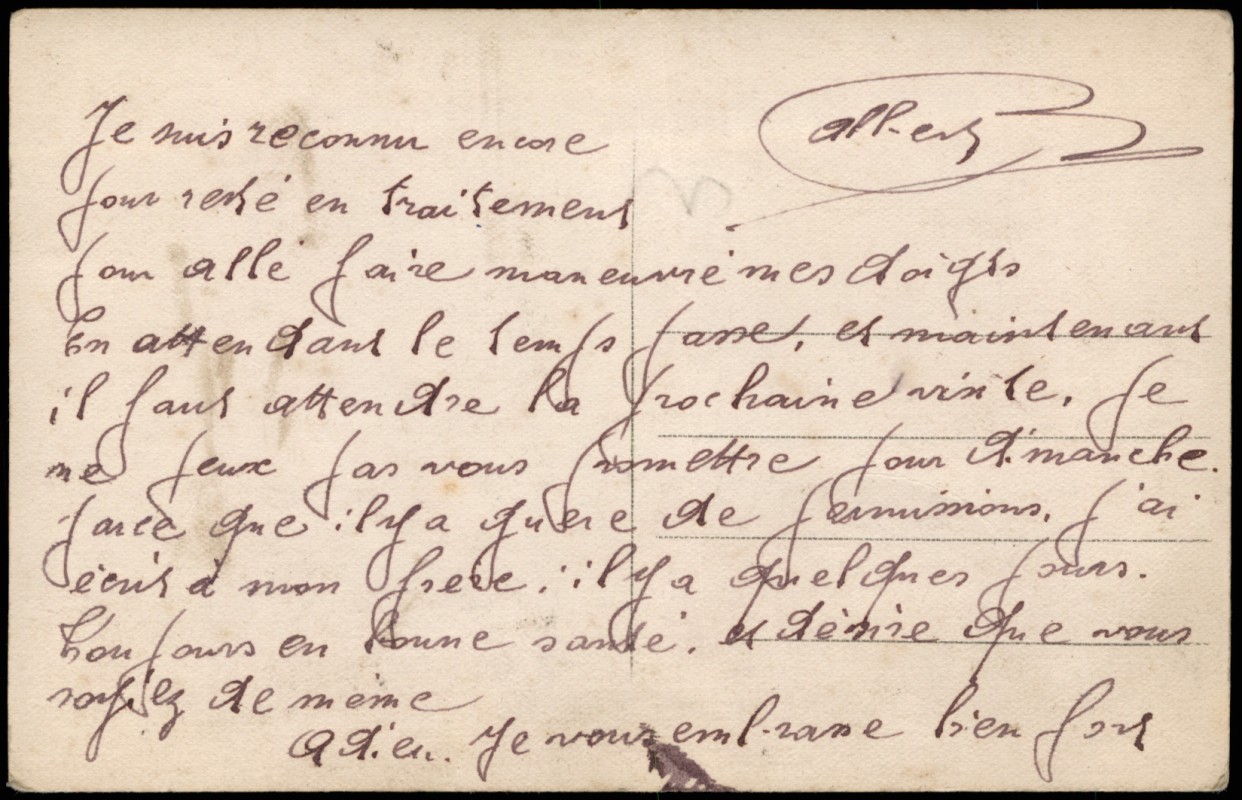 Albert
Je suis reconnu encore
pour resté en traitement
pour allé faire maneuvré mes doigts
En attendant le temps passe, et maintenant
il faut attendre la prochaine visite. Je
ne peux pas vous promettre pour dimanche.
parce que il y a guere de permissions. J'ai
écrit à mon frere, il y a quelques jours.
Toujours en bonne santé. et désire que vous
soyiez de meme
Adieu. Je vous embrasse bien fort